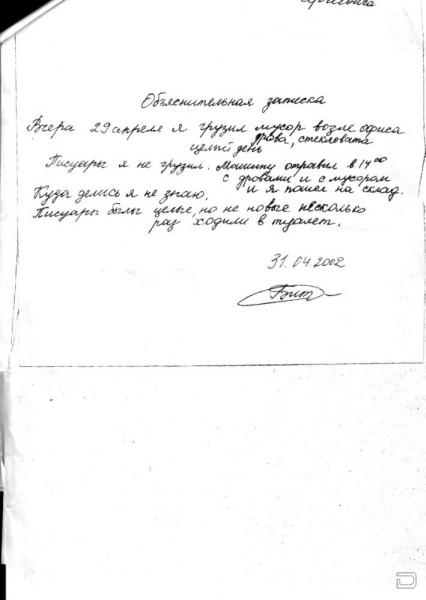 Объяснительная записка
Вчера 29 апреле я грузил мусор возле офиса
дрова, стекловата
целый день
Писуары я не грузил. Машину отравил в 14 00
с дровами и с мусором
Куда делись я не знаю. и я пошел на склад.
Писуары были целые, но не новые несколько
раз ходили в туалет.
31.04.2002